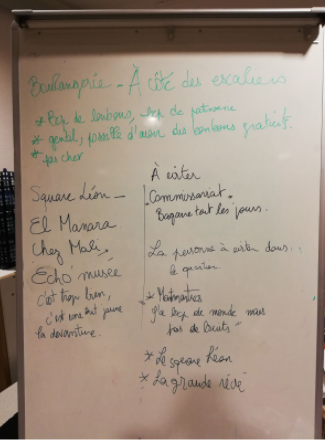 Boulangerie - À côté des escaliers
* Bcp de bonbons, bcp de patisserie
* gentil, possible d'avoir des bonbons gratuits.
* pas cher
Square Léon -
El Manara.
Chez Mali.
Écho musée
c'est trop bien,
c'est une tout jaune
la devanture.
À eviter
Commissariat.
Bagarre tout les jours.
La personne à eviter dans...
le quartier
*
Y'a bcp de monde mais
pas de bruits"
* Le square Léon
* La grande